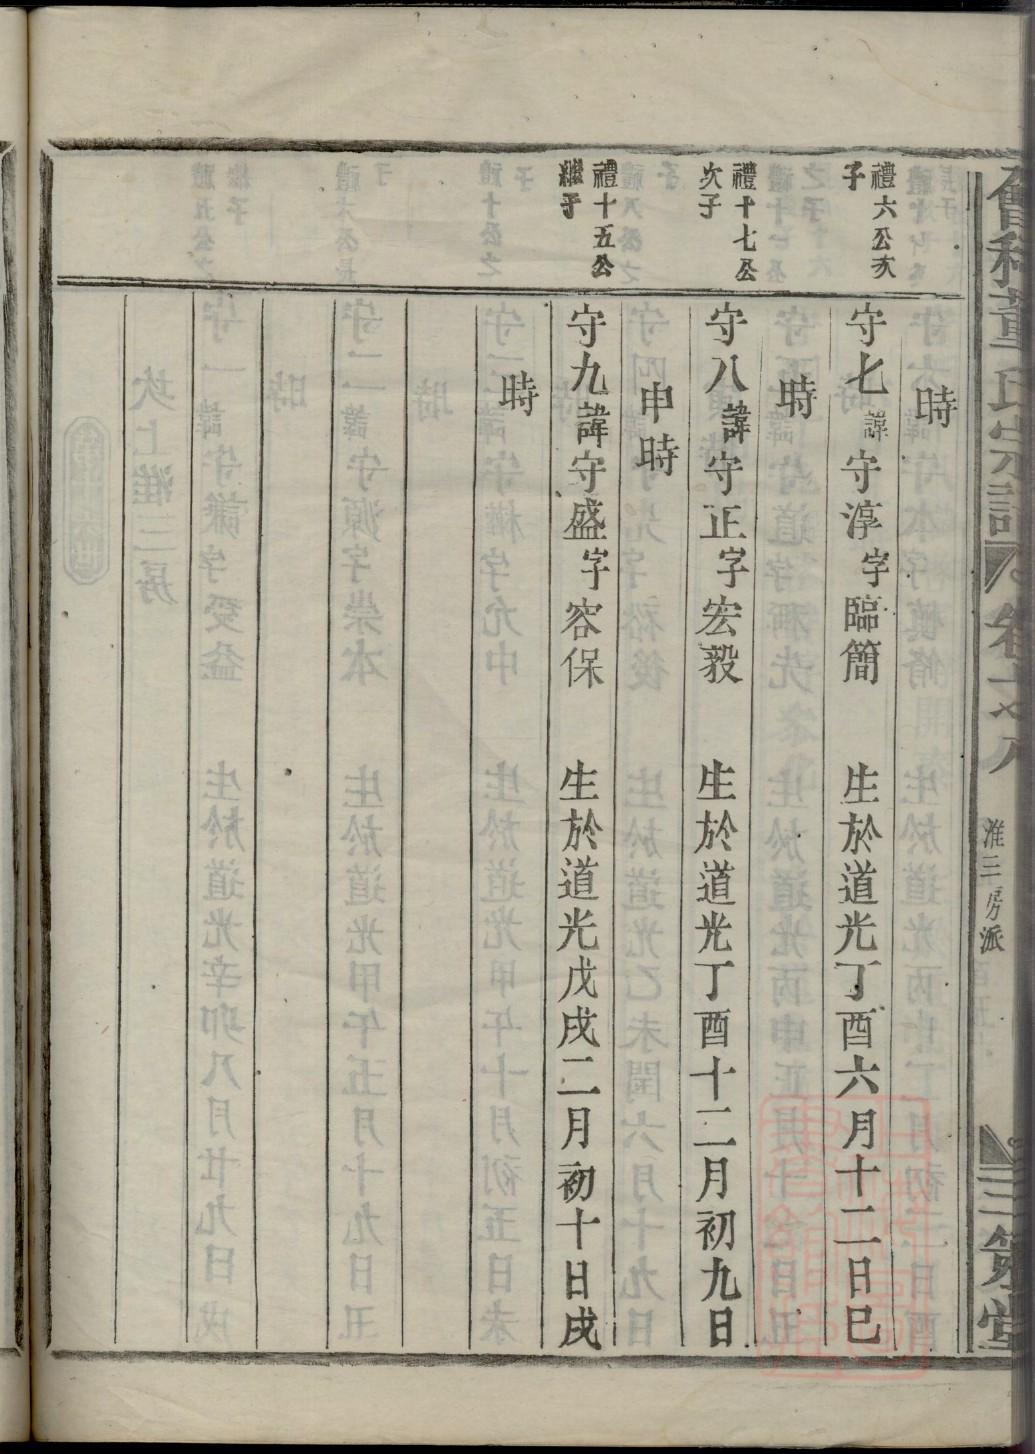 會稽董氏宗譜 卷之八 淮三房派 三策堂
時
禮六公次子
守七諱守淳字臨簡 生於道光丁酉六月十二日巳
時
禮十七公次子
守八諱守正字宏毅 生於道光丁酉十二月初九日
申時
禮十五公繼子
守九諱守盛字容保 生於道光戊戌二月初十日戌
時